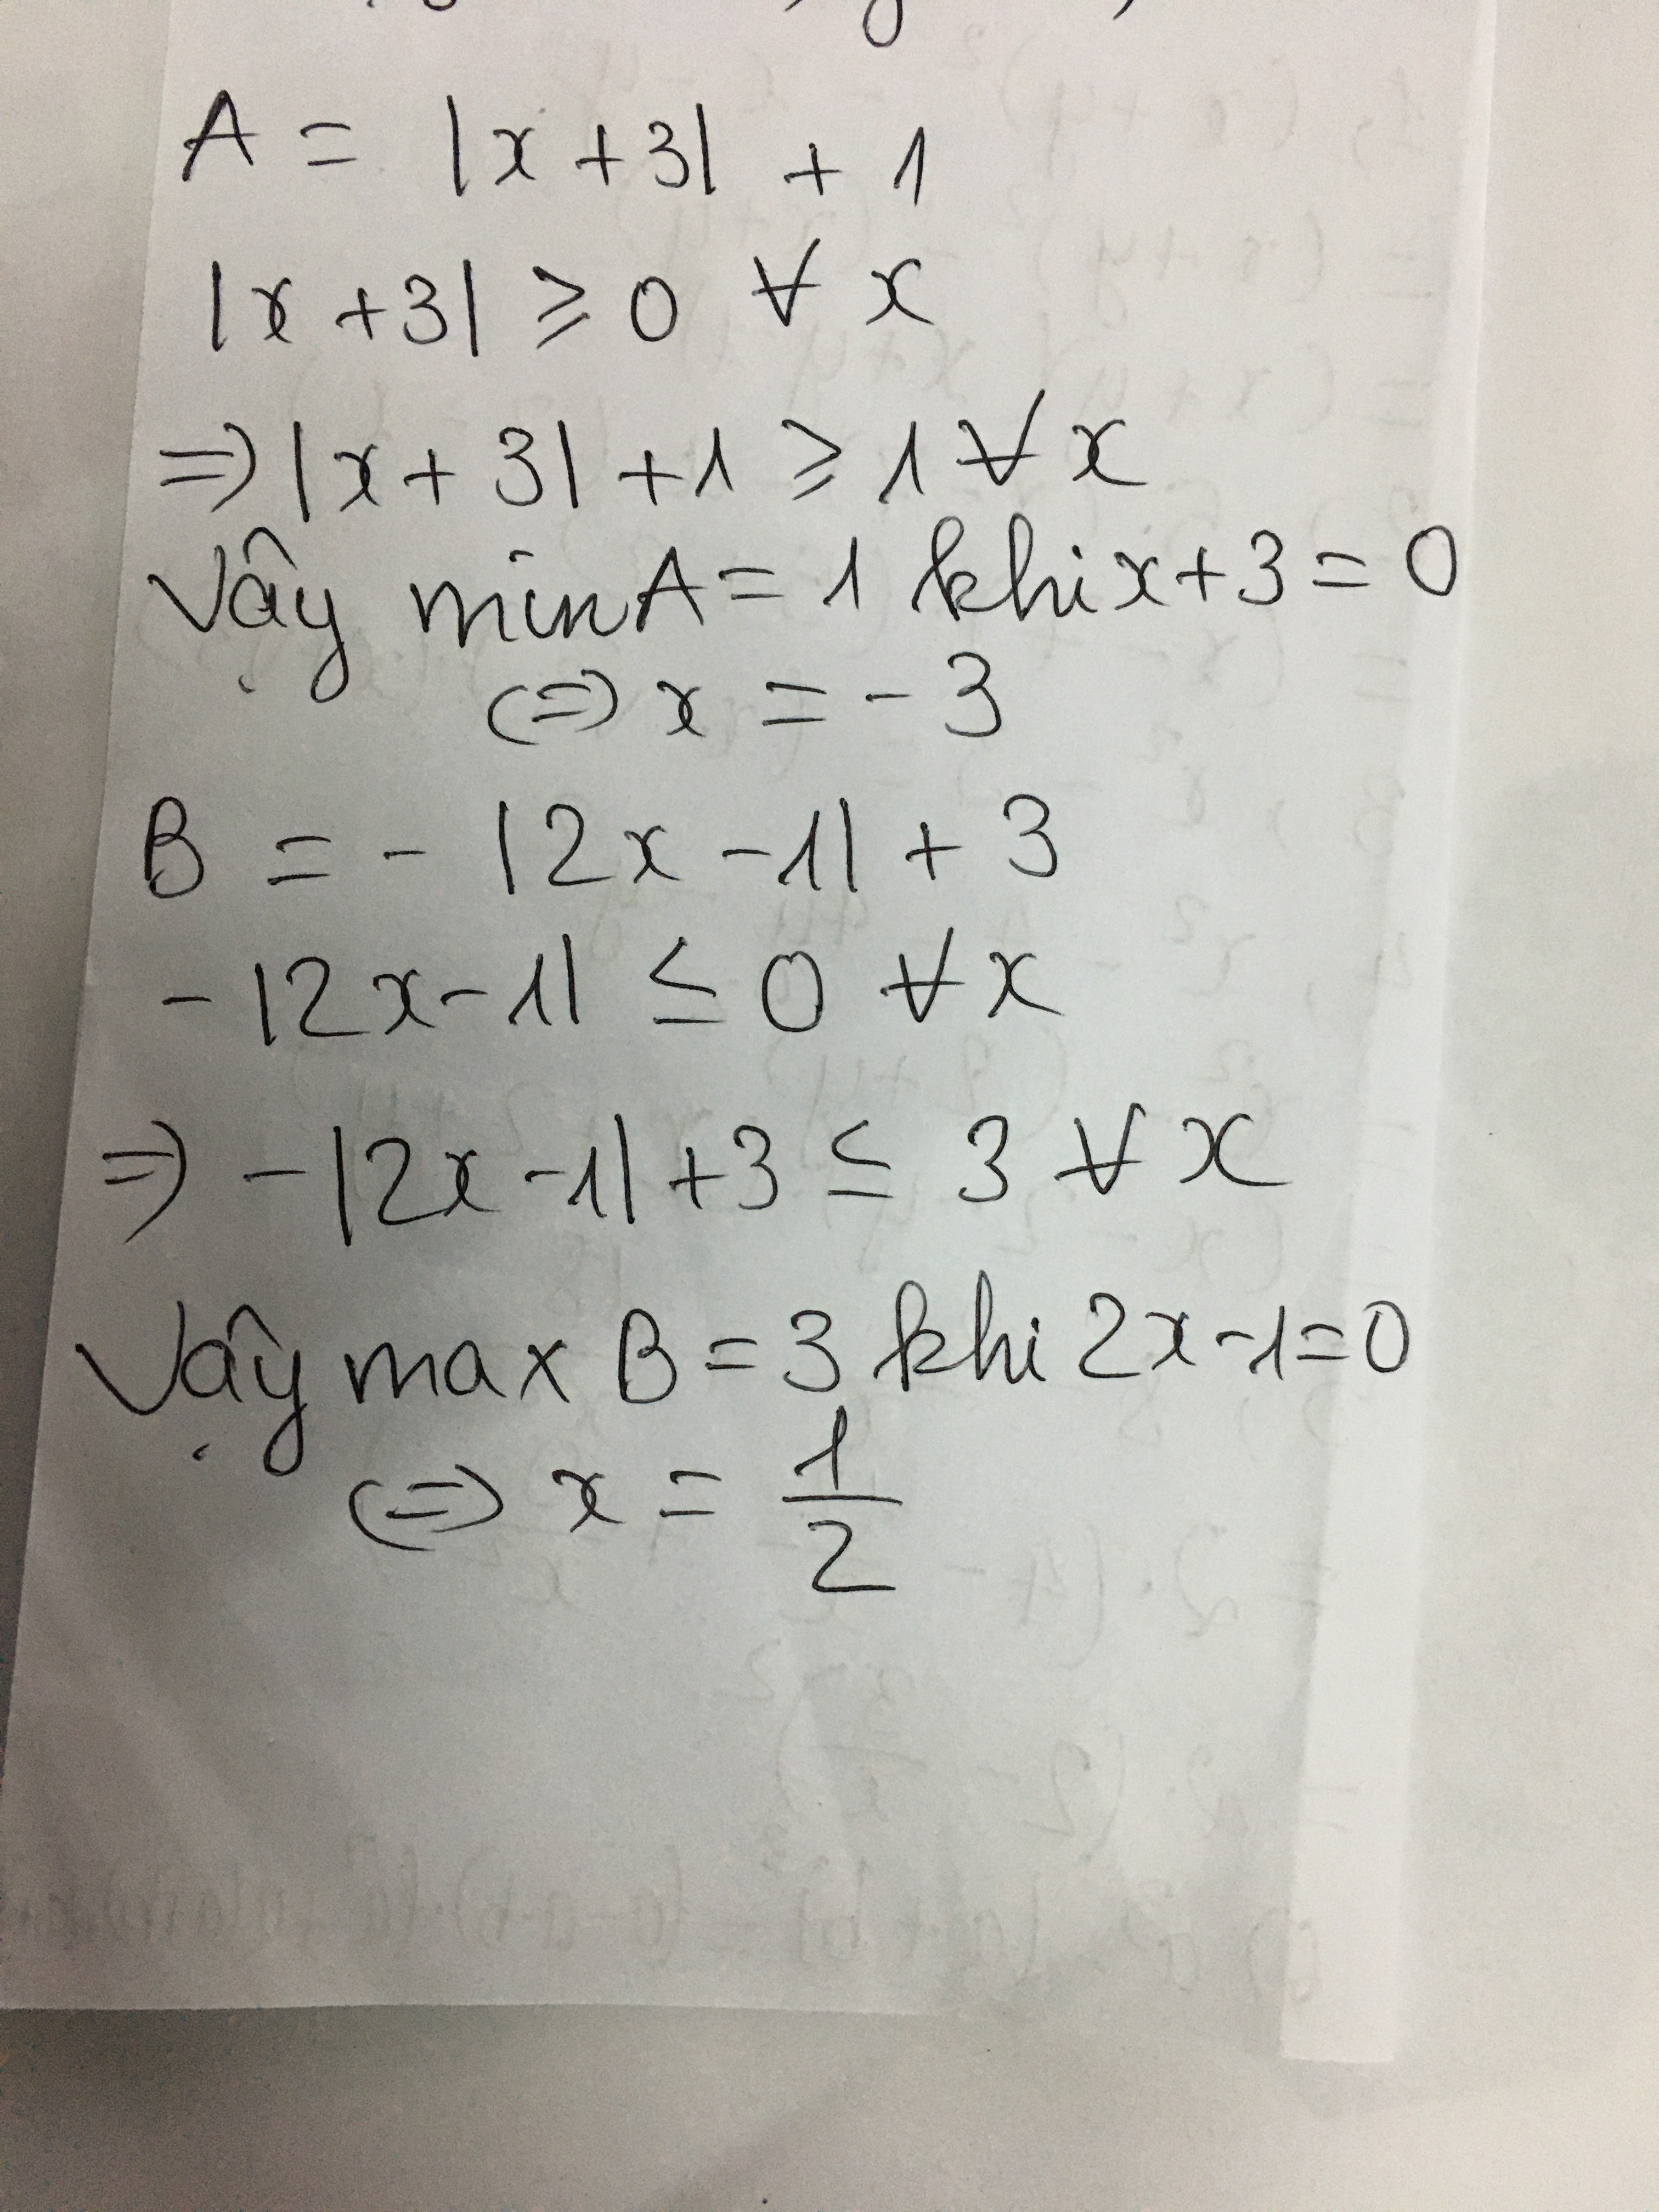 A = |x + 3| + 1
|x + 3| ⩾ 0 ∀ x
=> |x + 3| + 1 ⩾ 1 ∀ x
Vậy min A = 1 khi x + 3 = 0
<=> x = - 3
B = - |2x - 1| + 3
- |2x - 1| ≤ 0 ∀ x
=> - |2x - 1| + 3 ≤ 3 ∀ x
Vậy max B = 3 khi 2x - 1 = 0
<=> x = 1/2